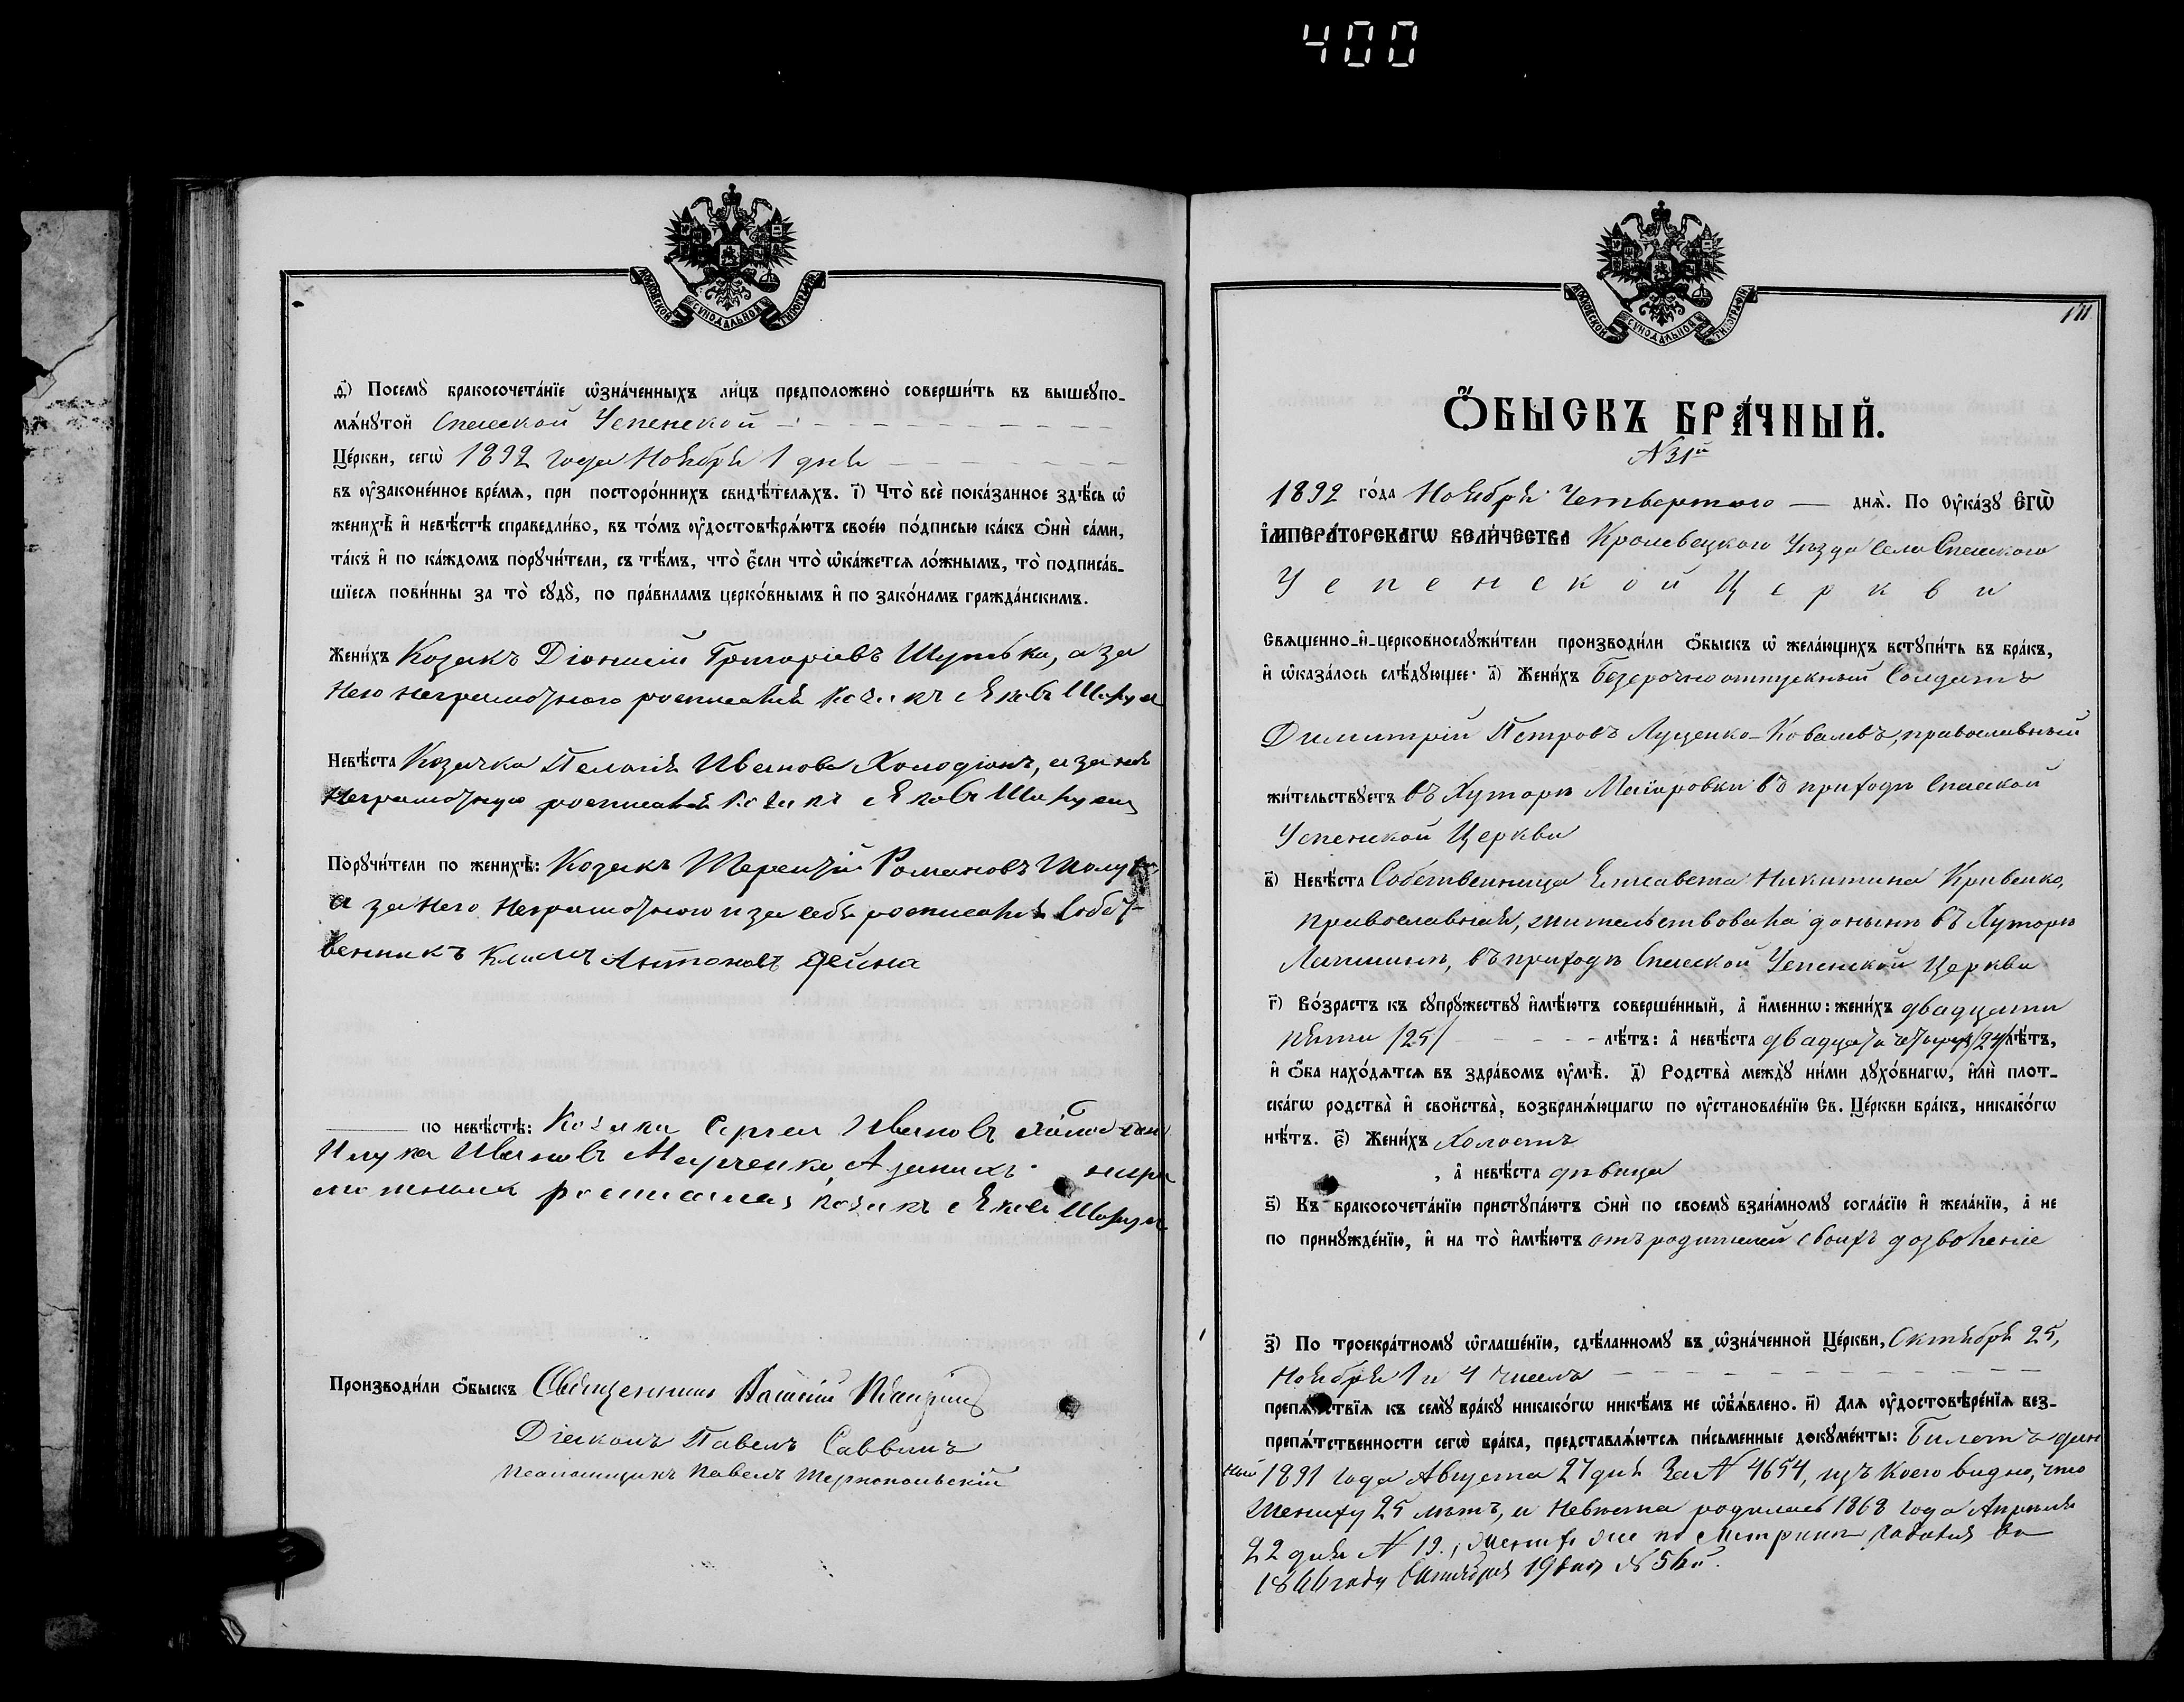 400
МОСКОВСКОЙ СѴНОДАЛЬНОЙ ТИПОГРАФІИ
д҃і) Посемꙋ̀ бракосочета́нїе ѡ҆зна́ченныхъ ли́цъ предположено̀ соверши́ть въ вышеꙋпо-
мѧ́нꙋтой Спасской Успенской
Це́ркви, сегѡ̀ 1892 года Ноября 1 дня
въ ᲂу҆законе́нное вре́мѧ, при посторо́ннихъ свидѣ́телѧхъ. і҃) Что̀ всѐ пока́занное здѣ́сь ѡ҆
женихѣ̀ и҆ невѣ́стѣ справедли́во, въ то́мъ ᲂу҆достовѣрѧ́ютъ свое́ю по́дписью ка́къ ѻ҆нѝ са́ми,
та́къ и҆ по ка́ждомъ порꙋчи́тели, съ тѣ́мъ, что̀ є҆́сли что̀ ѡ҆ка́жетсѧ ло́жнымъ, то̀ подписа́в-
шїесѧ пови́нны за то̀ сꙋдꙋ̀, по пра́виламъ церко́внымъ и҆ по зако́намъ гражда́нскимъ.
Жени́хъ Козакъ Діонисій Григоріевъ Шутька, а за
него неграмотнаго росписался козакъ Яковъ
Невѣ́ста Козачка Пелагія Иванова Холодіонъ, а за нея
неграмотную росписался козакъ Яковъ
Порꙋчи́тели по женихѣ̀: Козакъ Терентій Романовъ
а за него неграмотнаго и за себя росписался Собст-
венникъ Климъ Антоновъ Дейна
по невѣ́стѣ: Козаки Сергей Ивановъ
Ивановъ Марченко, А за нихъ негра
мотныхъ росписался козакъ Яковъ
Производи́ли ѻ҆́быскъ Священникъ Василій
Діаконъ Павелъ Саввинъ
Псаломщикъ Павелъ Тернопольскій
МОСКОВСКОЙ СѴНОДАЛЬНОЙ ТИПОГРАФІИ
171
Ѻ҆́БЫСКЪ БРА́ЧНЫЙ.
№ 31й
1892 го́да Ноября Четвертаго днѧ̀. По ᲂу҆ка́зꙋ Є҆ГѠ̀
І҆МПЕРА́ТОРСКАГѠ ВЕЛИ́ЧЕСТВА Кролевецкаго Уѣзда Села Спасскаго
Успенской Церкви
Свѧщенно-и҆-церковнослꙋжи́тели производи́ли ѻ҆́быскъ ѡ҆ жела́ющихъ встꙋпи́ть въ бра́къ,
и҆ ѡ҆каза́лось слѣ́дꙋющее: а҃) Жени́хъ Безсрочноотпускный Солдатъ
Димитрій Петровъ Луценко-Ковалевъ, православный
жи́тельствꙋетъ въ Хуторѣ Маіоровки въ приходѣ Спасской
Успенской Церкви
в҃) Невѣ́ста Собственница Елисавета Никитина Кривенко,
православная, жительствовала донынѣ въ Хуторѣ
Лапшинѣ, въ приходѣ Спасской Успенской Церкви
г҃) Во́зрастъ къ сꙋпрꙋ́жествꙋ и҆мѣ́ютъ соверше́нный, а҆ и҆́меннѡ: жени́хъ двадцати
пяти /25/ лѣ́тъ: а҆ невѣ́ста двадцати четырехъ /24/ лѣ́тъ,
и҆ ѻ҆́ба нахо́дѧтсѧ въ здра́вомъ ᲂу҆мѣ̀. д҃) Родства̀ междꙋ̀ ни́ми дꙋхо́внагѡ, и҆лѝ плот-
ска́гѡ родства̀ и҆ свойства̀, возбранѧ́ющагѡ по ᲂу҆становле́нїю Св. Це́ркви бра́къ, никако́гѡ
нѣ́тъ. є҃) Жени́хъ Холостъ
, а҆ невѣ́ста дѣвица
ѕ҃) Къ бракосочета́нїю пристꙋпа́ютъ ѻ҆нѝ по своемꙋ̀ взаи́мномꙋ согла́сїю и҆ жела́нїю, а҆ не
по принꙋжде́нїю, и҆ на то̀ и҆мѣ́ютъ отъ родителей своихъ дозволеніе
з҃) По троекра́тномꙋ ѡ҆глаше́нїю, сдѣ́ланномꙋ въ ѡ҆зна́ченной Це́ркви, Октября 25,
Ноября 1 и 4 числъ
препѧ́тствїѧ къ семꙋ̀ бра́кꙋ никако́гѡ никѣ́мъ не ѡ҆б̾ѧ́влено. и҃) Для ᲂу҆достовѣре́нїѧ без-
препѧ́тственности сегѡ̀ бра́ка, представлѧ́ютсѧ пи́сьменные докꙋме́нты: Билетъ дан
ный 1891 года Августа 27 дня За № 4654, изъ коего видно, что
Жениху 25 лѣтъ, а Невѣста родилась 1868 года Апрѣля
22 дня № 19., Женихъ же по Метрикѣ родился въ
1866 году Октября 19 дня № 56й.